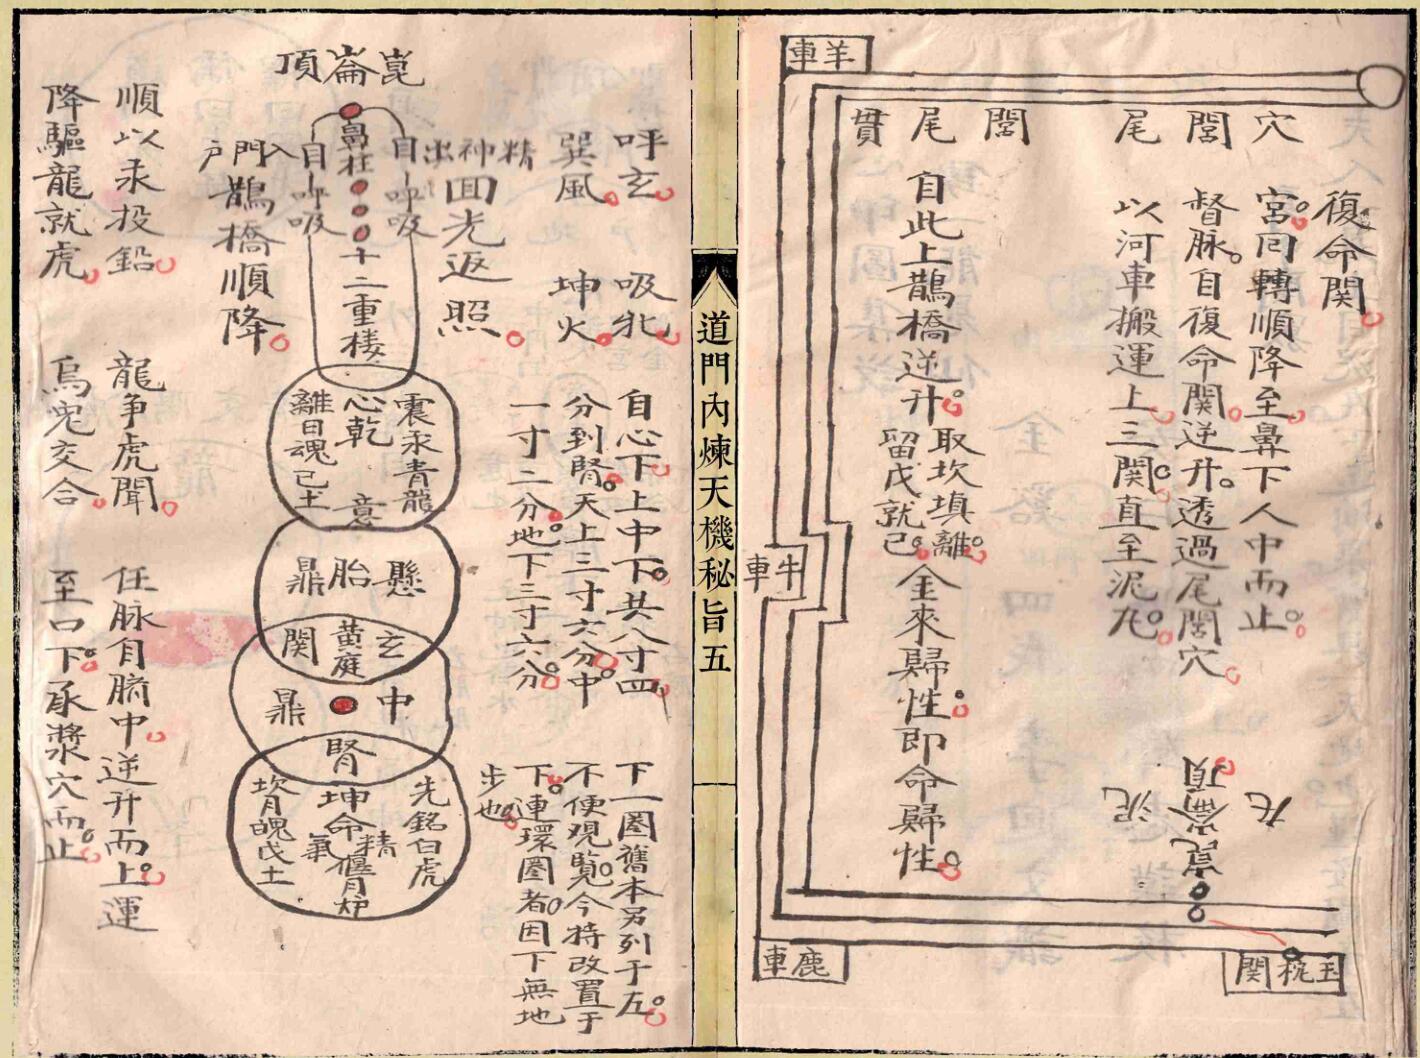 羊車
穴
閭
尾
閭
尾
貫
復命関
宮回轉順降至鼻下人中而止
督脉自復命関逆升透過尾閭穴
以河車搬運上三関直至泥丸
自此上鵲橋逆升
取坎填離
留戊就己
金來歸性即命歸性
牛車
丸
崑崙頂
泥
玉枕関
鹿車
道門內煉天機秘旨五
呼玄 吸牝
巽風 坤火
自心下上中下共八寸四
分到腎天上三寸六分中
一寸二分地下三寸六分
下一圈舊本另列于左
不便現覽今特改置于
下連環圈者因下無地
步也
崑崙頂
精神出
自呼吸
回光返照
鼻柱
十二重楼
自呼吸
入門戶
鵲橋順降
震汞青龍
心乾
意
離日魂己土
懸胎鼎
玄
黄庭
関
中
鼎
腎
坤命
精
氣
偃月炉
坎月魄戊土
順以汞投鉛
降驅龍就虎
龍争虎聞
烏兎交合
任脉自臍中逆升而上運
至口下承漿穴而止